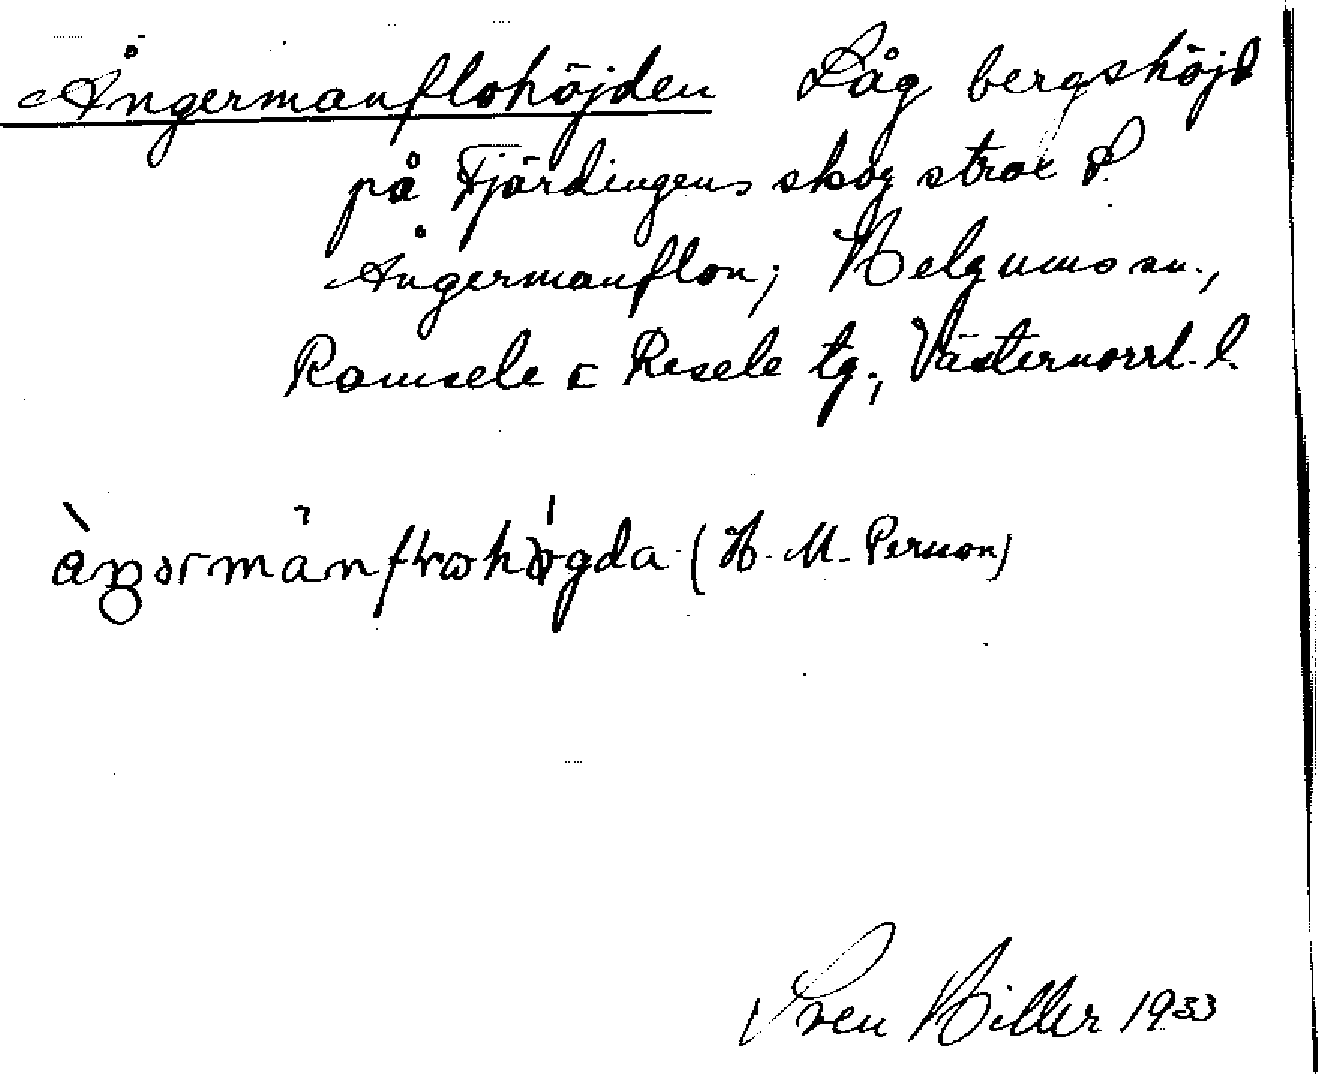 Ångermanflohöjden Låg bergshöjd
på Fjärdingens skog strax S.
Ångermanflon; Helgums sn.,
Ramsele o Resele tg., Västernorrl. l.
(H. M. Persson)
Sven Hiller 1933